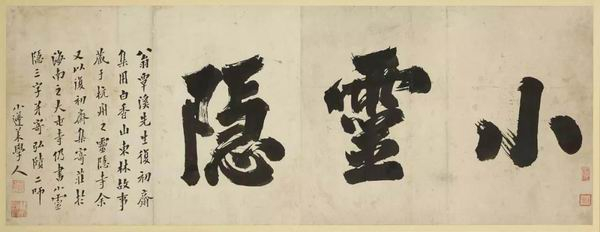 小靈隱
翁覃溪先生復初齋
集用白香山東林故事
藏于杭州之靈隱寺余
又以復初齋集寄於
海南之大士寺仍書小靈
隱三字并寄弘二師
小蓬萊學人